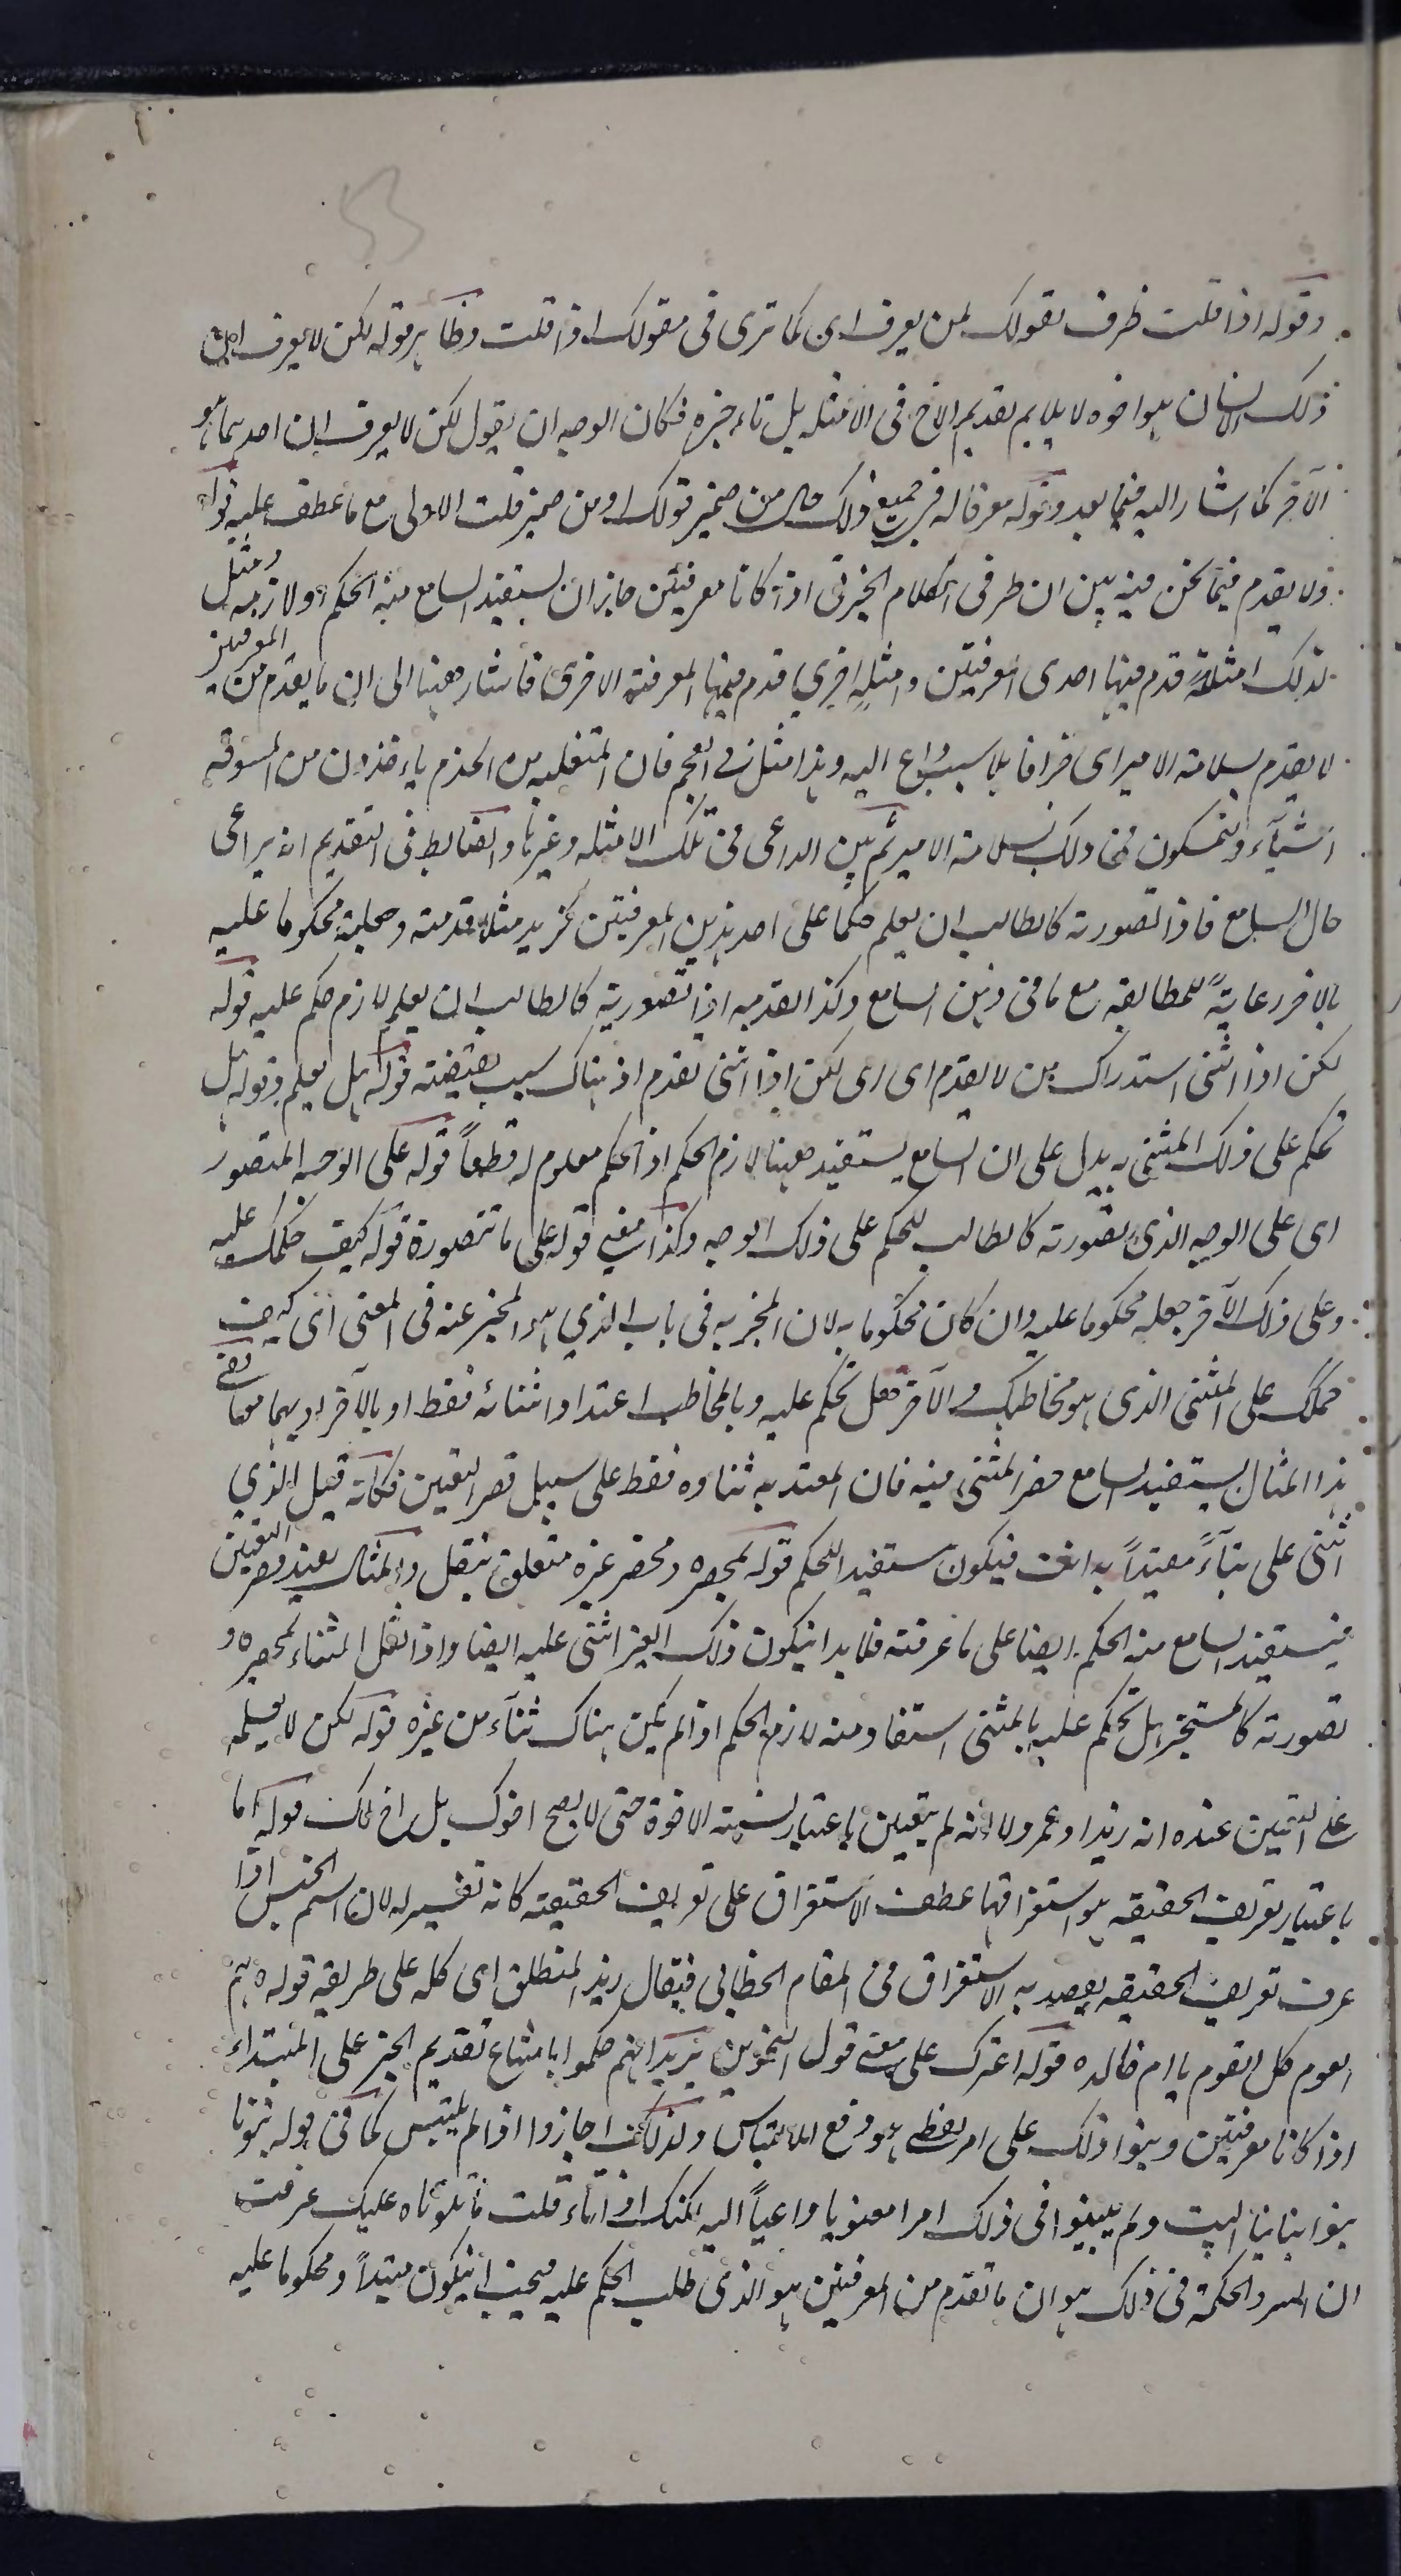 وقوله اذا قلت ظرف لقولك لمن يعرف اى كما ترى فى مقولك اذا قلت وظاهر قوله لكن لا يعرف ان
ذلك الانسان هو اخوه لا يلايم تقديم الاخ فى الامثله بل تاخيره فكان الوجه ان يقول لكن لا يعرف ان احدهما هو
الآخر كما اشار اليه فيما بعد وقوله معرفا له فى جميع ذلك حال من ضمير قولك او من ضمير قلت الاولى مع ما عطف عليه قوله
ولا يقدم فيما نحن فيه بين ان طرفى الكلام الخبرى اذا كانا معرفتين جاز ان يستفيد السامع منه الحكم او لازمه ومثل
لذلك امثلةً قدم فيها احدى المعرفتين وامثلةٍ اخرى قدم فيها المعرفة الاخرى فاشار ههنا الى ان ما يقدم من المعرفتين
لا يقدم بسلامة الامير اى جزافا بلا سبب داع اليه وهذا مثل فى العجم فان المتغلبه من الخدم ياءخذون من السوقه
اشيآء ويتمسكون فى ذلك بسلامة الامير ثم بين الداعى فى تلك الامثله وغيرها والضابط فى التقديم انه يراعى
حال السامع فاذا تصورته كالطالب ان يعلم حكما على احد هذين المعرفتين كزيد مثلا قدمته وجعلته محكوما عليه
بالاخر رعايةً للمطابقه مع ما فى ذهن السامع وكذا تقدمه اذا تصورته كالطالب ان يعلم لازم حكم عليه قوله
لكن اذا اثنى استدراك من لا يقدم اى اى لكن اذا اثنى تقدم اذ هناك سبب يقتضيه قوله هل يعلم وقوله هل
تحكم على ذلك المثنى به يدل على ان السامع يستفيد ههنا لازم الحكم اذ الحكم معلوم له قطعاً قوله على الوجه المتصور
اى على الوجه الذى تصورته كالطالب للحكم على ذلك الوجه وكذا معنى قوله على ما تتصورة قوله كيف حكمك عليه
وعلى ذلك الآخر جعله محكوما عليه وان كان محكوما به لان المخبر به فى باب الذي هو المخبر عنه فى المعنى اى كيف
حكمك على المثنى الذى هو مخاطبك والآخر فهل تحكم عليه وبالمخاطب اعتدادا ثنائه فقط او بالآخر او بهما معا ففى
هذا المثال يستفيد السامع حصر المثنى فيه فان المعتد به ثناوه فقط على سبيل قصر التعيين فكانه قيل الذي
اثنى على ثنآءً معتداً به انت فيكون مستفيدا للحكم قوله لحصره وحصر غيره متعلق بنقل والمثال يفيد قصر التعيين
فيستفيد السامع منه الحكم ايضا على ما عرفته فلا بد ان يكون ذلك الغير اثنى عليه ايضا واذا نقل الثناء لحصره و
تصورته كالمستخبر هل تحكم عليه بالمثنى استفاد منه لازم الحكم اذ لم يكن هناك ثنآء من غيره قوله لكن لا يعلمه
على التعيين عنده انه زيد او عمرو لا انه لم يتعين باعتبار نسبة الاخوة حتى لا يصح اخوك بل اخ لك قوله اما
باعتبار تعريف الحقيقه هو استغراقها عطف الاستغراق على تعريف الحقيقة كانه تفسير له لان اسم الجنس اذا
عرف تعريف الحقيقه يقصد به الاستغراق فى المقام الخطابى فيقال زيد المنطلق اى كله على طريقه قوله هم
القوم كل القوم يا ام خالده قوله اغترك على معنى قول النحويين يريد انهم حكموا بامتناع تقديم الخبر على المبتداء
اذا كانا معرفتين وبنوا ذلك على امر لفظى هو وقوع الالتباس ولذلك اجازوا اذا لم يلتبس كما فى قوله بنونا
بنوا ابنائنا البيت ولم يبينوا فى ذلك امرا معنويا داعياً اليه لكنك اذا تاءملت ما تلوناه عليك عرفت
ان السر والحكمة فى ذلك هو ان ما تقدم من المعرفتين هو الذى طلب الحكم عليه فيجب ان يكون مبتدأً ومحكوما عليه